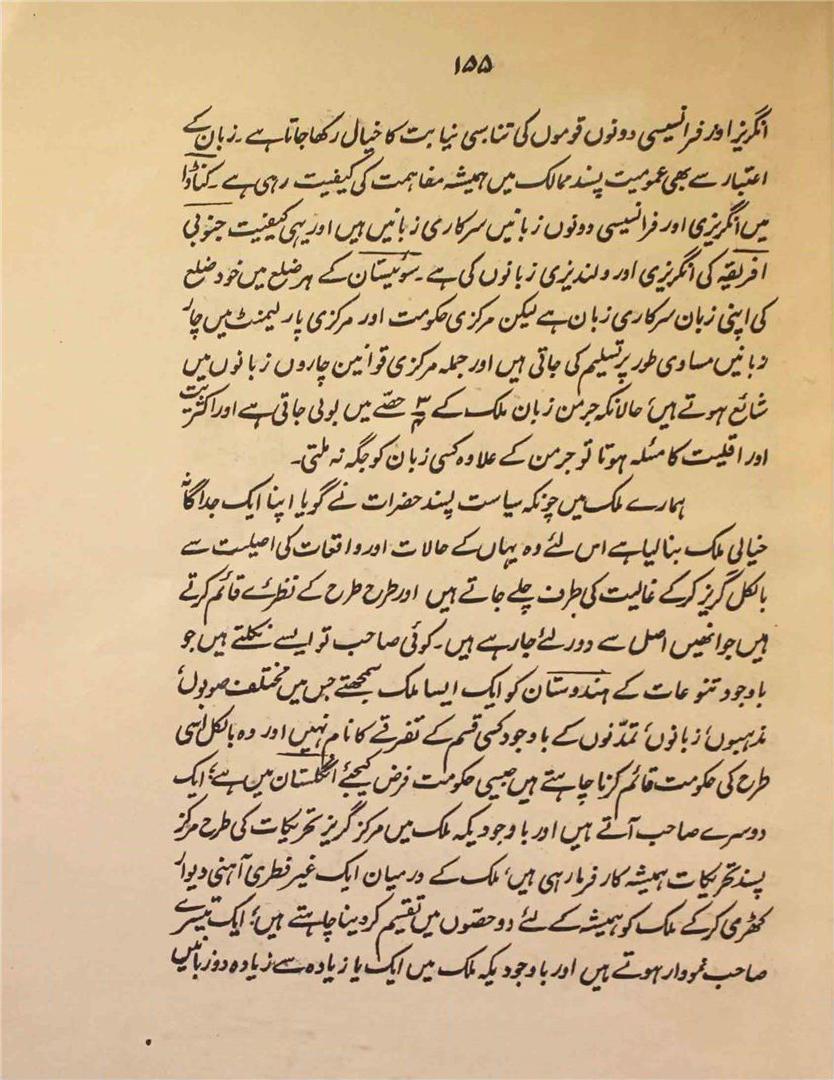 ۱۵۵
انگریز اور فرانسیسی دونوں قوموں کی تناسبی نیابت کا خیال رکھا جاتا ہے۔ زبان کے
اعتبار سے بھی عمومیت پسند ممالک میں ہمیشہ مفاہمت کی کیفیت رہی ہے۔ کناڈا
میں انگریزی اور فرانسیسی دونوں زبانیں سرکاری زبانیں ہیں اور یہی کیفیت جنوبی
افریقہ کی انگریزی اور ولندیزی زبانوں کی ہے۔ سوئیستان کے ہر ضلع میں خود ضلع
کی اپنی زبان سرکاری زبان ہے لیکن مرکزی حکومت اور مرکزی پارلیمنٹ میں چار
زبانیں مساوی طور پر تسلیم کی جاتی ہیں اور جملہ مرکزی قوانین چاروں زبانوں میں
شائع ہوتے ہیں؛ حالانکہ جرمن زبان ملک کے ۳/۴ حصّے میں بولی جاتی ہے اور اکثریت
اور اقلیت کا مسئلہ ہوتا تو جرمن کے علاوہ کسی زبان کو جگہ نہ ملتی۔
ہمارے ملک میں چونکہ سیاست پسند حضرات نے گویا اپنا ایک جداگانہ
خیالی ملک بنا لیا ہے اس لئے وہ یہاں کے حالات اور واقعات کی اصلیت سے
بالکل گریز کر کے غالیت کی طرف چلے جاتے ہیں اور طرح طرح کے نظرئے قائم کرتے
ہیں جو انھیں اصل سے دور لئے جا رہے ہیں۔ کوئی صاحب تو ایسے نکلتے ہیں جو
باوجود تنوعات کے ہندوستان کو ایک ایسا ملک سمجھتے جس میں مختلف صوبوں؛
مذہبوں؛ زبانوں؛ تمدّنوں کے باوجود کسی قسم کے تفرقے کا نام نہیں اور وہ بالکل اسی
طرح کی حکومت قائم کرنا چاہتے ہیں جیسی حکومت فرض کیجئے انگلستان میں ہے؛ ایک
دوسرے صاحب آتے ہیں اور باوجودیکہ ملک میں مرکز گریز تحریکات کی طرح مرکز
پسند تحریکات ہمیشہ کارفرما رہی ہیں؛ ملک کے درمیان ایک غیر فطری آہنی دیوار
کھڑی کر کے ملک کو ہمیشہ کے لئے دو حصّوں میں تقسیم کر دینا چاہتے ہیں؛ ایک تیسرے
صاحب نمودار ہوتے ہیں اور باوجودیکہ ملک میں ایک یا زیادہ سے زیادہ دو زبانیں